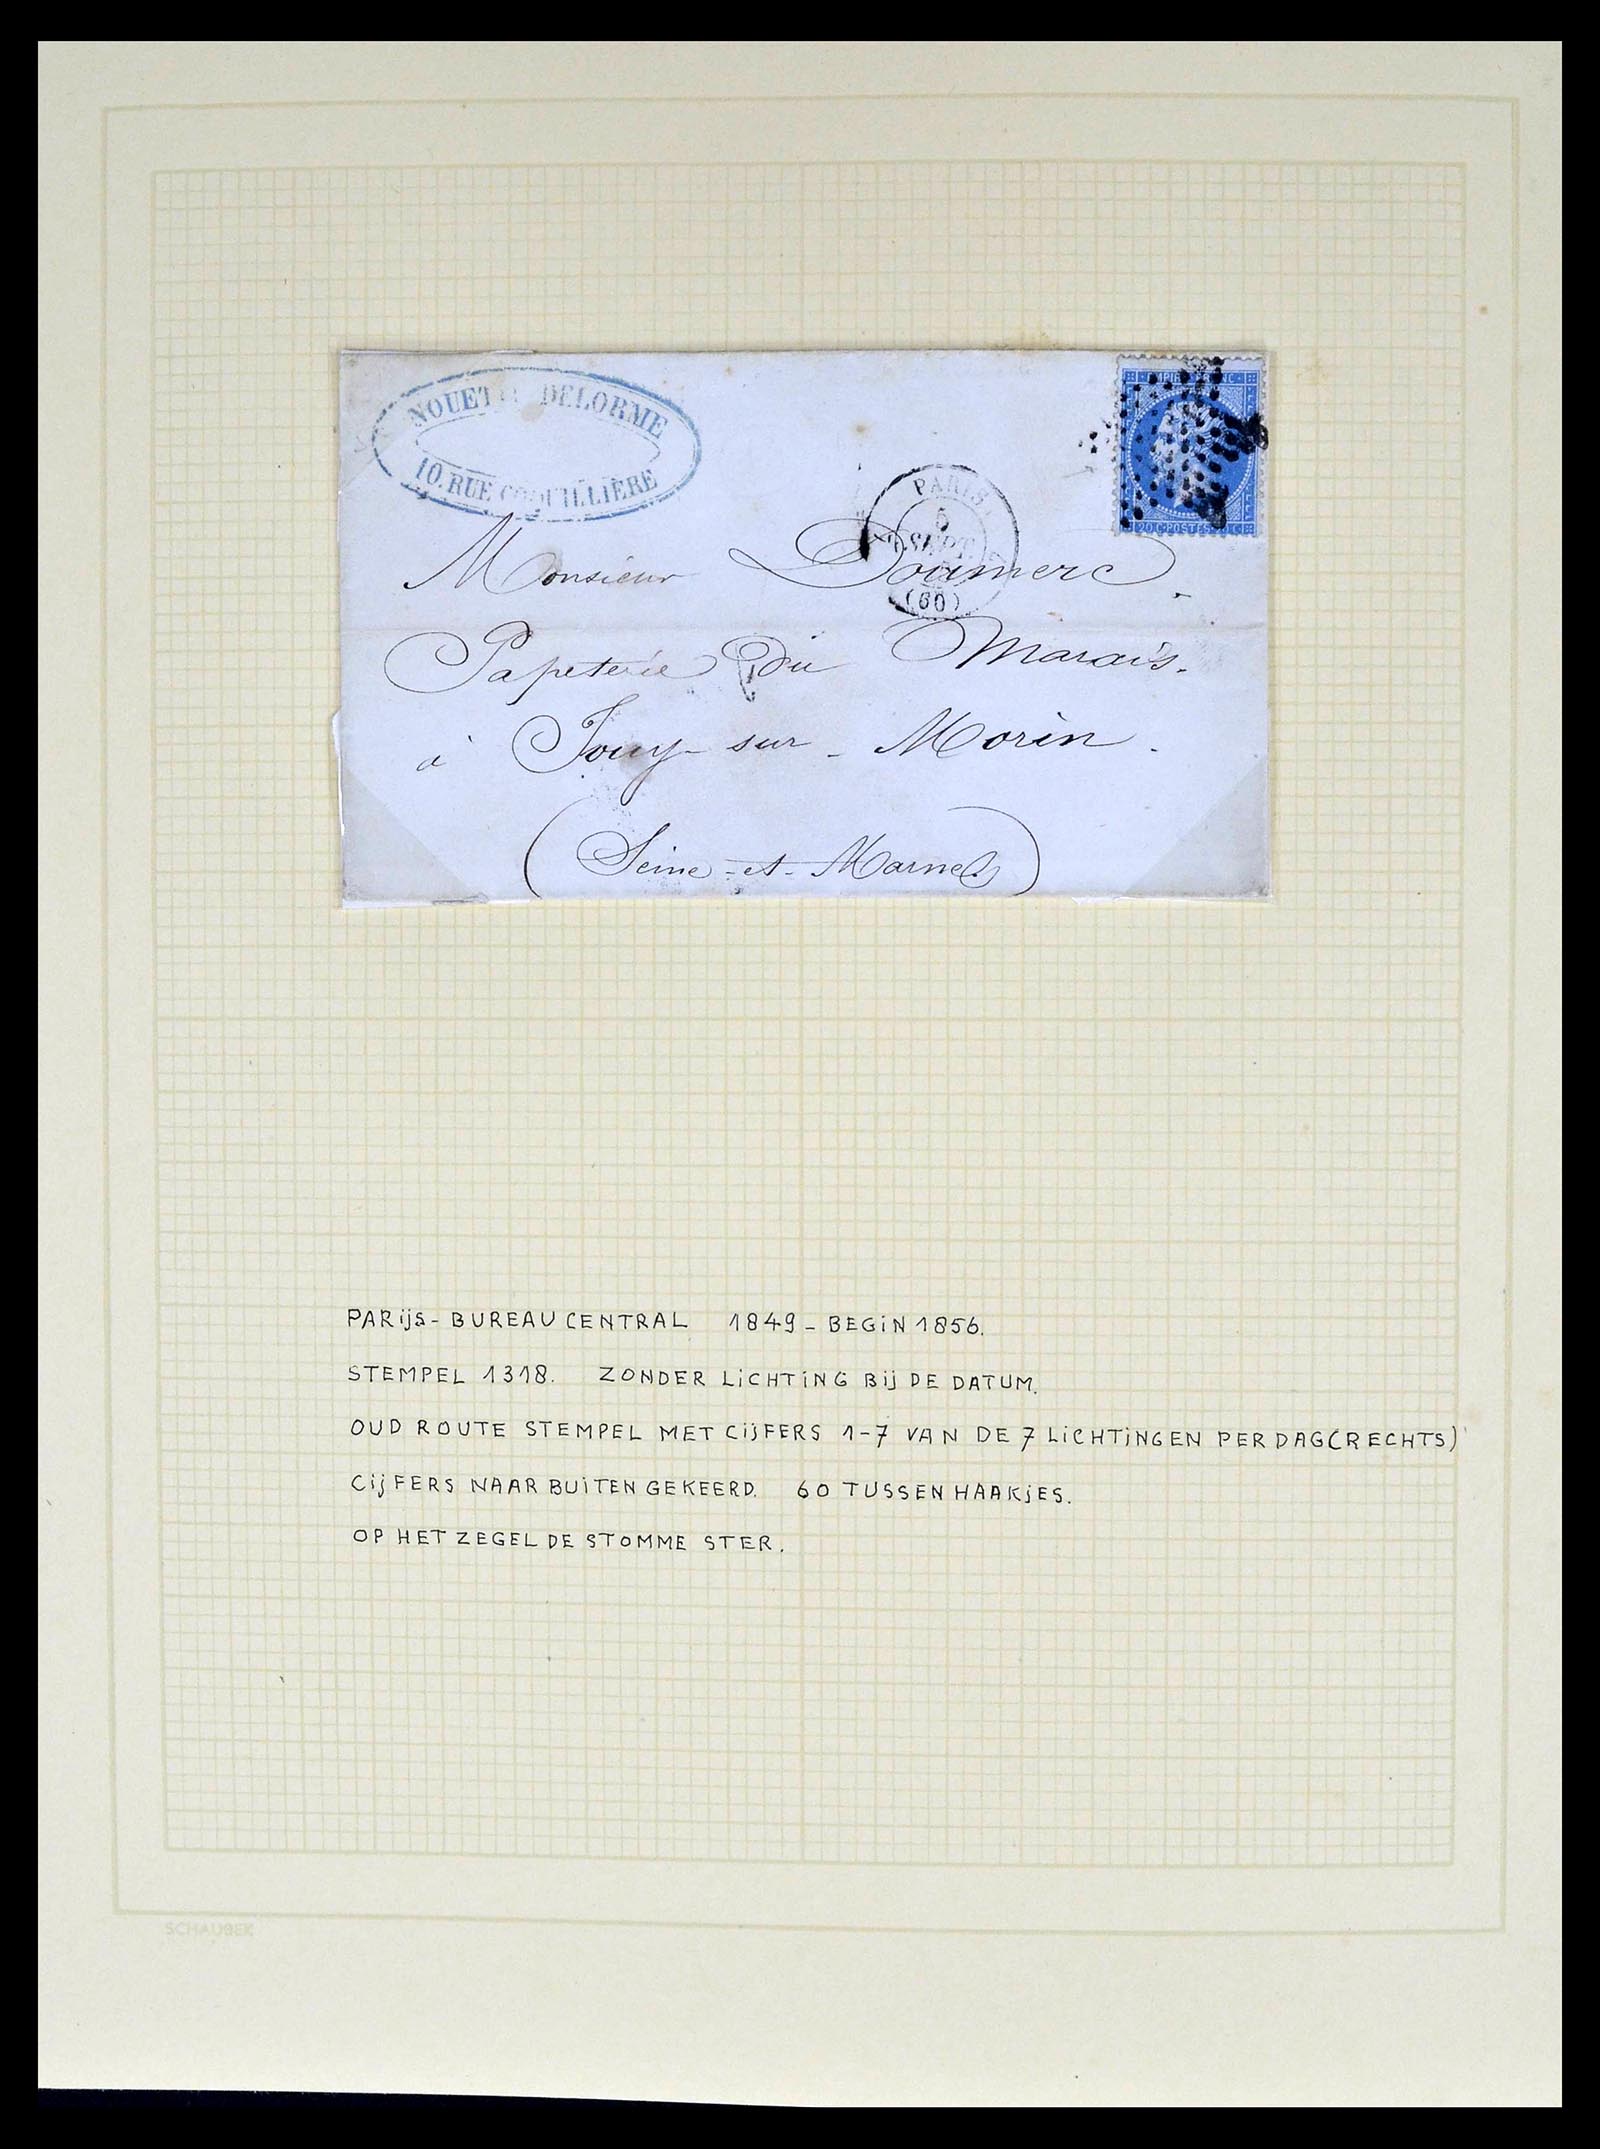 DELORME
10. RUE COQUILLIÈRE
PARIS
5
SEPT.
(60)
20 C. POSTES 20 C.
Monsieur Doumerc.
Papeterie Du Marais.
à Jouy-sur-Morin.
(Seine-et-Marne)
PARijS - BUREAU CENTRAL 1849 - BEGiN 1856.
STEMPEL 1318. ZONDER LiCHTiNG Bij DE DATUM.
OUD ROUTE STEMPEL MET CijFERS 1-7 VAN DE 7 LiCHTiNGEN PER DAG (RECHTS)
CijFERS NAAR BUiTEN GEKEERD. 60 TUSSEN HAAKjES.
OP HET ZEGEL DE STOMME STER.
SCHAUBEK